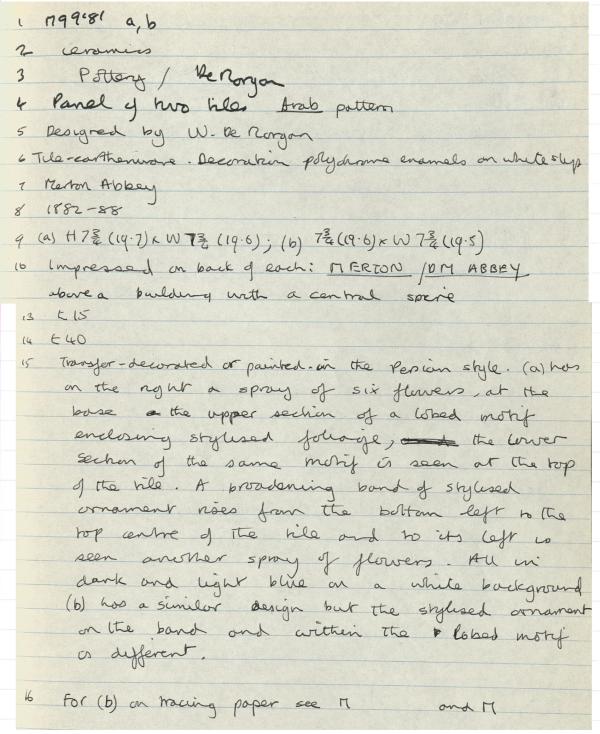 1 M99'81 a, b
2 ceramics
3 Pottery / De Morgan
4 Panel of two tiles Arab pattern
5 Designed by W. De Morgan
6 Tile-earthenware. Decoration polychrome enamels on white slip
7 Merton Abbey
8 1882-88
9 (a) H 7¾ (19.7) x W 7¾ (19.6); (b) 7¾ (19.6) x W 7¾ (19.5)
10 Impressed on back of each: MERTON / DM ABBEY
above a building with a central spire
13 £15
14 £40
15 Transfer-decorated or painted in the Persian style. (a) has
on the right a spray of six flowers, at the
base the upper section of a lobed motif
enclosing stylised foliage, the lower
section of the same motif is seen at the top
of the tile. A broadening band of stylised
ornament rises from the bottom left to the
top centre of the tile and to its left is
seen another spray of flowers. All in
dark and light blue on a white background
(b) has a similar design but the stylised ornament
on the band and within the lobed motif
is different.
16 For (b) on tracing paper see M and M